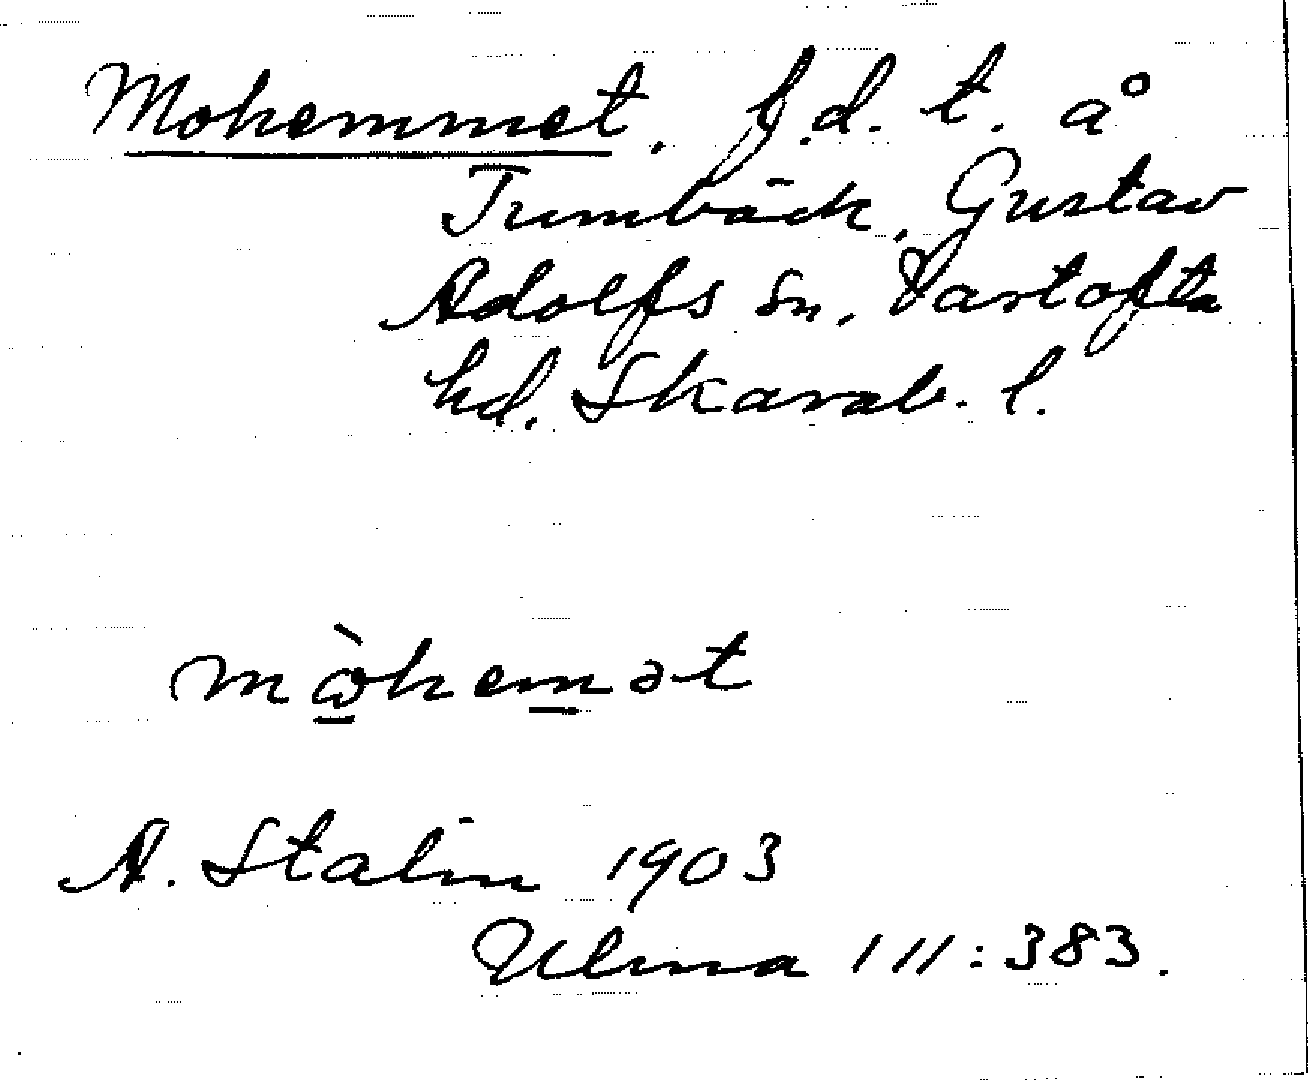 Mohemmet, f.d. t. å
Trumbäck, Gustav
Adolfs sn, Vartofta
hd. Skarab. l.
mωhemət
A. Stalin 1903
Ulma 111:383.